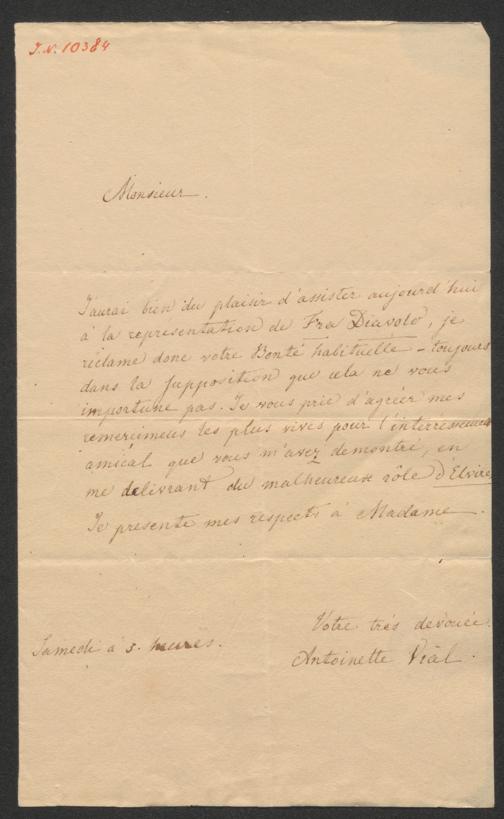 J.N. 10384
Monsieur.
J'aurai bien du plaisir d'assister aujourd'hui
à la representation de Fra Diavolo, je
réclame donc votre Bonté habituelle – toujours
dans la supposition que cela ne vous
importune pas. Je vous prie d'agréer mes
remercimens les plus vives pour l'
amical que vous m'avez demontré, en
me delivrant du malheureux rôle d'Elvire.
Je presente mes respects à Madame.
Votre trés dévouée
Samedi à 5. heures.
Antoinette Vial.